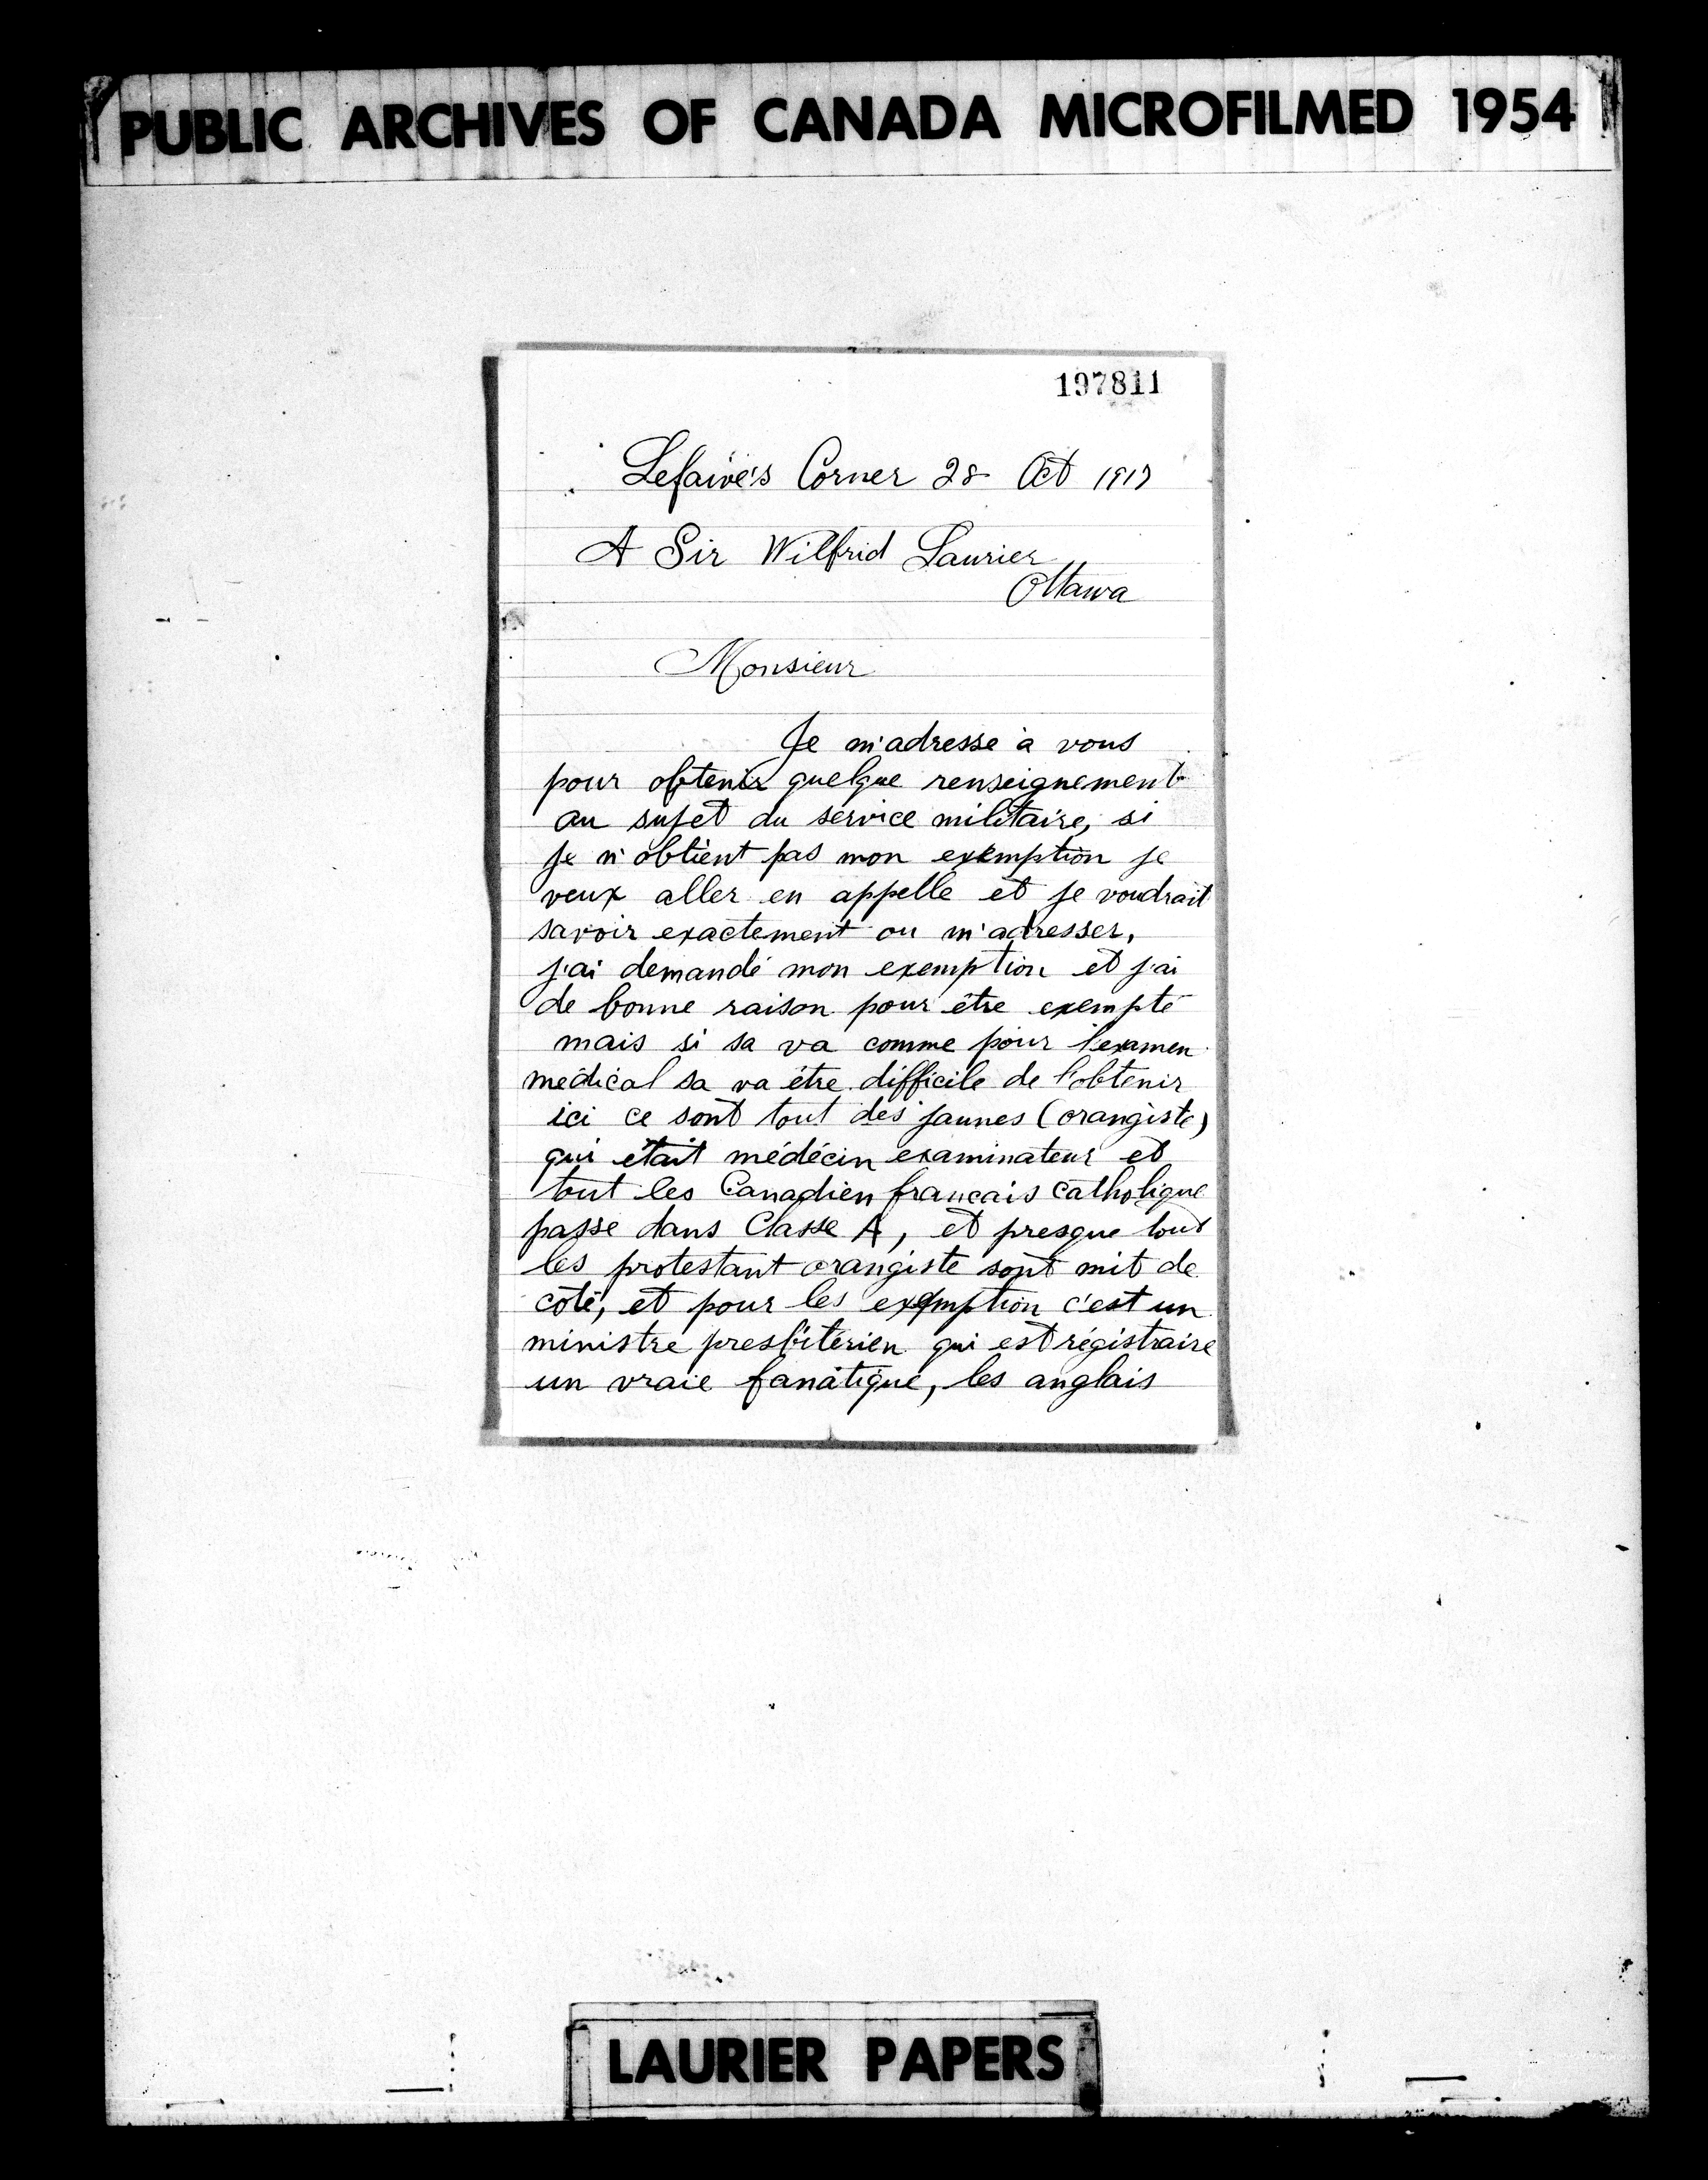 PUBLIC ARCHIVES OF CANADA MICROFILMED 1954
197811
Lefaive's Corner 28 Oct 1917
A Sir Wilfrid Laurier
Ottawa
Monsieur
Je m'adresse à vous
pour obtenir quelque renseignement
au sujet du service militaire, si
je n'obtient pas mon exemption je
veux aller en appelle et je voudrait
savoir exactement ou m'adresser,
j'ai demandé mon exemption et j'ai
de bonne raison pour être exempté
mais si sa va comme pour l'examen
médical sa va être difficile de l'obtenir
ici ce sont tout des jaunes (orangiste)
qui était médécin examinateur et
tout les Canadien francais catholique
passe dans Classe A, et presque tout
les protestant orangiste sont mit de
coté, et pour les exemption c'est un
ministre presbitérien qui est régistraire
un vraie fanatique, les anglais
LAURIER PAPERS